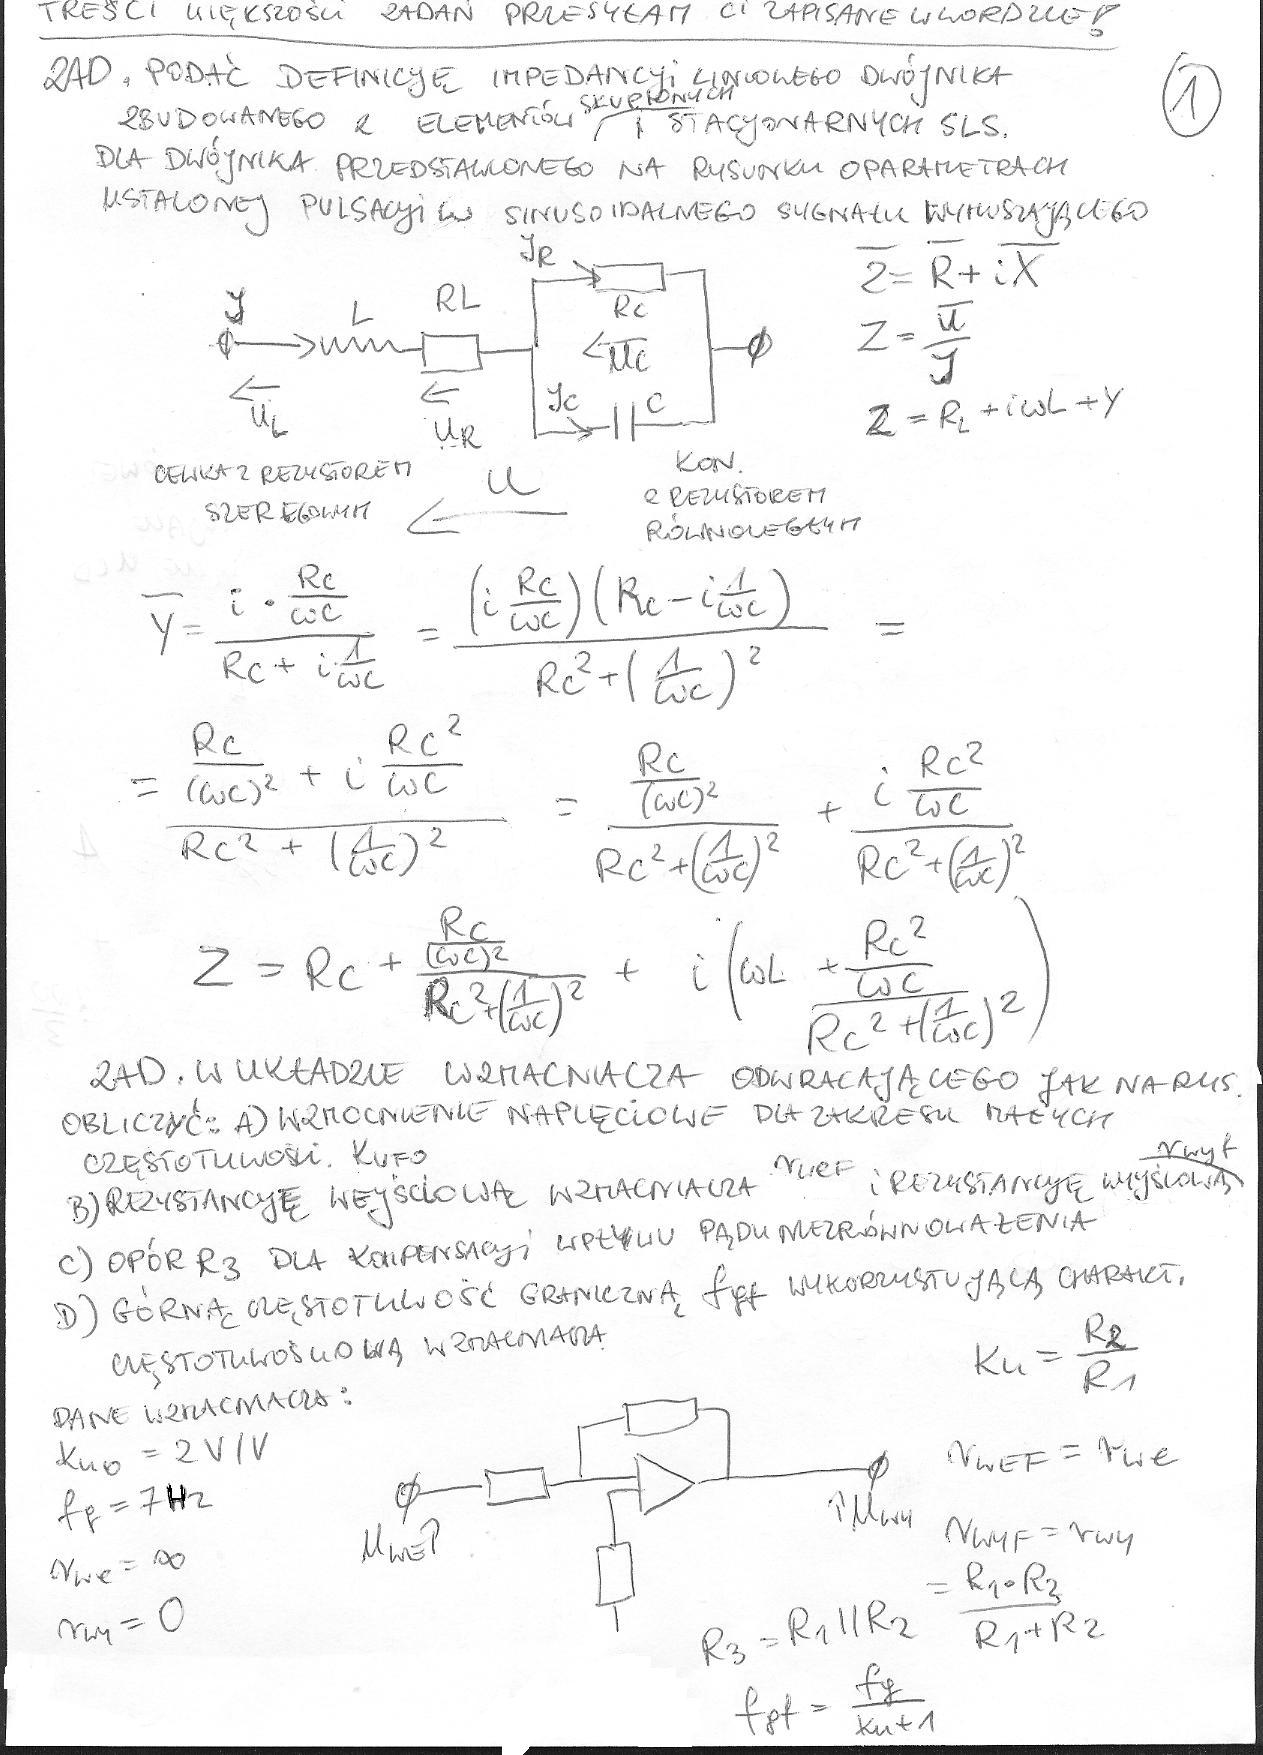 TREŚCI WIĘKSZOŚCI ZADAŃ PRZESYŁAM CI ZAPISANE W WORDZIE!
1
ZAD. PODAĆ DEFINICJĘ IMPEDANCJI LINIOWEGO DWÓJNIKA
ZBUDOWANEGO Z ELEMENTÓW SKUPIONYCH I STACJONARNYCH SLS.
DLA DWÓJNIKA PRZEDSTAWIONEGO NA RYSUNKU O PARAMETRACH
USTALONEJ PULSACJI W SINUSOIDALNEGO SYGNAŁU WYMUSZAJĄCEGO
J L RL JR RC UC JC C
UL UR
Z = R + iX
Z = U / J
Z = RL + iωL + Y
CEWKA Z REZYSTOREM
SZEREGOWYM
U
KON.
Z REZYSTOREM
RÓWNOLEGŁYM
Y = (i · RC/ωC) / (RC + i 1/ωC) = (i RC/ωC)(RC − i 1/ωC) / (RC² + (1/ωC)²) =
= (RC/(ωC)² + i RC²/ωC) / (RC² + (1/ωC)²) = (RC/(ωC)²) / (RC² + (1/ωC)²) + (i RC²/ωC) / (RC² + (1/ωC)²)
Z = RC + (RC/(ωC)²) / (RC² + (1/ωC)²) + i (ωL + (RC²/ωC) / (RC² + (1/ωC)²))
ZAD. W UKŁADZIE WZMACNIACZA ODWRACAJĄCEGO JAK NA RYS.
OBLICZYĆ: A) WZMOCNIENIE NAPIĘCIOWE DLA ZAKRESU MAŁYCH
CZĘSTOTLIWOŚCI. KUFO
B) REZYSTANCJĘ WEJŚCIOWĄ WZMACNIACZA rWEF I REZYSTANCJĘ WYJŚCIOWĄ rwyf
C) OPÓR R3 DLA KOMPENSACJI WPŁYWU PĄDU NIEZRÓWNOWAŻENIA
D) GÓRNĄ CZĘSTOTLIWOŚĆ GRANICZNĄ fgf WYKORZYSTUJĄCĄ CHARAKT.
CZĘSTOTLIWOŚCIOWĄ WZMACNIACZA
Ku = R2 / R1
DANE WZMACNIACZA:
Kuo = 2 V/V
fg = 7 Hz
rwe = ∞
rwy = 0
UWE↑
↑UWY
rWEF = rwe
rWYF = rwy
R3 = R1 || R2 = R1·R2 / R1+R2
fgf = fg / Ku+1